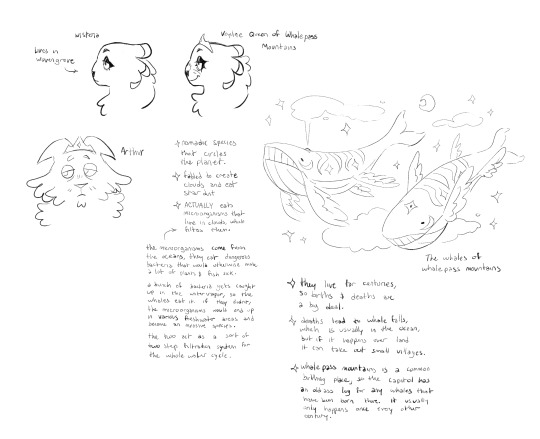 Wisteria
lives in
wovengrove
Vaylee Queen of Whalepass
Mountains
Arthur
nomadic species
that circles
the planet.
fabled to create
clouds and eat
star dust
ACTUALLY eats
microorganisms that
live in clouds, whale
filter them.
the microorganisms come from
the oceans, they eat dangerous
bacteria that would otherwise make
a lot of plants & fish sick.
a bunch of bacteria gets caught
up in the water vapor, so the
whales eat it. if they didn't,
the microorganisms would end up
in various freshwater areas and
become an invasive species.
the two act as a sort of
two step filtration system for
the whole water cycle.
The whales of
whalepass mountains
they live for centuries,
so births & deaths are
a big deal.
deaths lead to whale falls,
which is usually in the ocean,
but if it happens over land
it can take out small villages.
whalepass mountains is a common
birthing place, so the capitol has
an address log for any whales that
have been born there. it usually
only happens once every other
century.